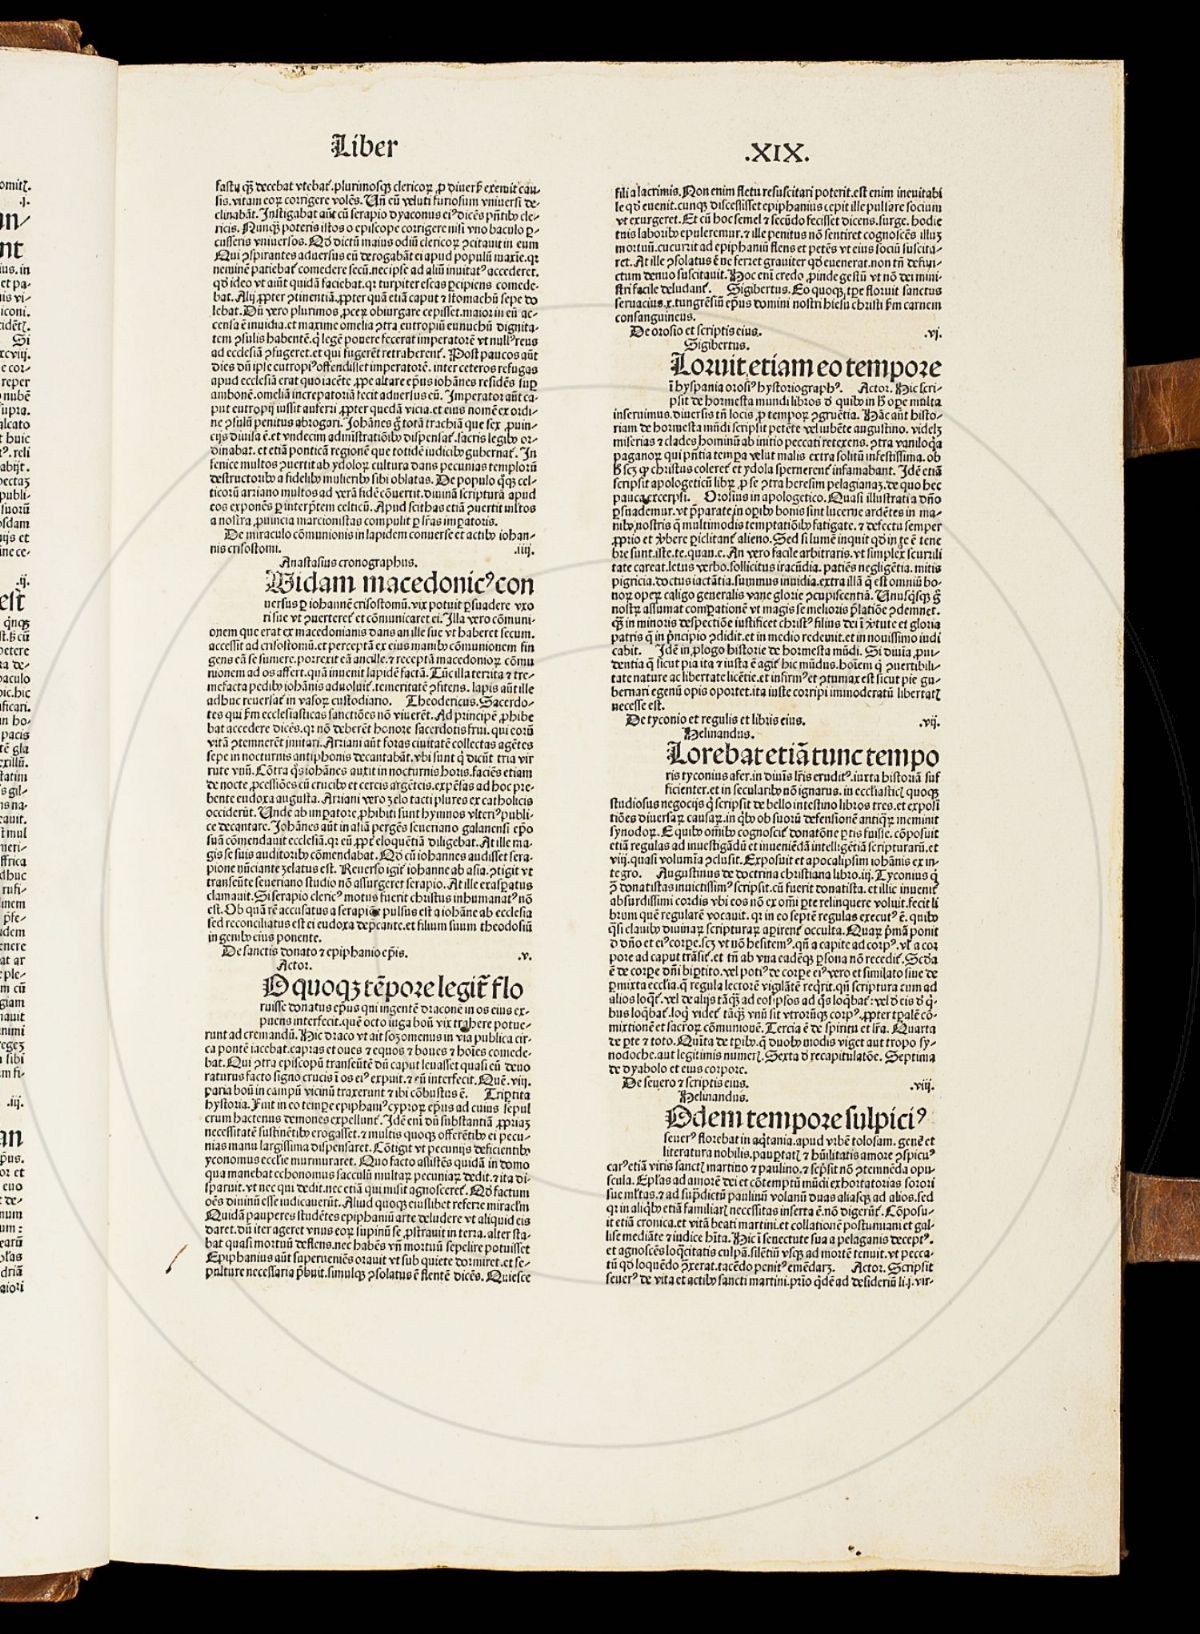 Liber
.XIX.
fastu qȝ decebat vtebat̄. plurimosqȝ clericoꝝ ꝓ diuerſ̄ exemit cau⸗
sis. vitam eoꝝ corrigere volēs. Vn̄ cū veluti furiosum vniuersi de⸗
clinabāt. Instigabat aūt cū serapio dyaconus eiꝰ dicēs pn̄tibꝰ cle⸗
ricis. Nunqȝ poteris istos o episcope corrigere nisi vno baculo ꝑ⸗
cusseris vniuersos. Qd̓ dictū maius odiū clericoꝝ ꝯcitauit in eum
Qui ꝯspirantes aduersus eū derogabāt ei apud populū maxīe. qꝛ
neminē patiebat̄ comedere secū. nec ipse ad aliū inuitatꝰ accederet.
qd̓ ideo vt aiūt quidā faciebat. qꝛ turpiter escas ꝑcipiens comede⸗
bat. Alij ꝓpter ꝯtinentiā. ꝓpter quā etiā caput ⁊ stomachū sepe do
lebat. Dū vero plurimos ꝓceꝝ obiurgare cepisset. maior in eū ac⸗
censa ē inuidia. et maxime omelia ꝯtra eutropiū eunuchū dignita⸗
tem ꝯsulis habentē. q̇ legē ponere fecerat imperatorē vt nullꝰ reus
ad ecclesiā ꝯfugeret. et qui fugerēt retraherent̄. Post paucos aūt
dies dū ipse eutropiꝰ offendisset imperatorē. inter ceteros refugas
apud ecclesiā erat quo iacēte ꝓpe altare ep̄us iohānes residēs suꝑ
ambonē. omeliā increpatoriā fecit aduersus eū. Imperator aūt ca⸗
put eutropij iussit auferri ꝓpter quedā vicia. et eius nomē ex ordi⸗
ne ꝯsulū penitus abrogari. Iohānes g̊ totā trachiā que sex ꝓuin⸗
cijs diuisa ē. et vndecim administratiōibꝰ dispensat̄. sacris legibꝰ or⸗
dinabat. et etiā ponticā regionē que totidē iudicibꝰ gubernat̄. In
fenice multos ꝯuertit ab ydoloꝝ cultura dans pecunias templorū
destructoribꝰ a fidelibꝰ mulieribꝰ sibi oblatas. De populo q̊qȝ cel⸗
ticorū arriano multos ad verā fidē cōuertit. diuinā scripturā apud
eos exponēs ꝑ interp̄tem celticū. Apud scithas etiā ꝯuertit m̄ltos
a nostra ꝓuincia marcionistas compulit ꝑ lr̄as imꝑatoris.
De miraculo cōmunionis in lapidem conuerse et actibꝰ iohan⸗
nis crisostomi. .iiij.
Anastasius cronographus.
Uidam macedonicꝰ con
uersus ꝑ iohannē crisostomū. vix potuit ꝑsuadere vxo
ri sue vt ꝯuerteret̄ et cōmunicaret ei. Illa vero cōmuni⸗
onem que erat ex macedonianis dans ancille sue vt haberet secum.
accessit ad crisostomū. et perceptā ex eius manibꝰ cōmunionem fin
gens eā se sumere. porrexit eā ancille. ⁊ receptā macedonioꝝ cōmu
nionem ad os affert. quā inuenit lapidē factā. Tūc illa territa ⁊ tre⸗
mefacta pedibꝰ iohānis aduoluit̄. temeritatē ꝯfitens. lapis aūt ille
adhuc reuersat̄ in vasoꝝ custodiario. Theodericus. Sacerdo⸗
tes qui ſm̄ ecclesiasticas sanctiōes nō viuerēt. Ad principē ꝓhibe
bat accedere dicēs. qꝛ nō deberēt honore sacerdotis frui. qui eorū
vitā ꝯtemnerēt imitari. Arriani aūt foras ciuitatē collectas agētes
sepe in nocturnis antiphonis decantabāt. vbi sunt q̇ dicūt tria vir
tute vnū. Cōtra q̊s iohānes auxit in nocturnis horis. faciēs etiam
de nocte ꝓcessiōes cū crucibꝰ et cereis argēteis. expēsas ad hoc pre⸗
bente eudoxa augusta. Arriani vero zelo tacti plures ex catholicis
occiderūt. Unde ab imꝑatore ꝓhibiti sunt hymnos vlteriꝰ publi⸗
ce decantare. Iohānes aūt in asiā ꝑgēs seueriano galanensi ep̄o
suā cōmendauit ecclesiā. qꝛ eū ꝓpter eloquētiā diligebat. At ille ma⸗
gis se suis auditoribꝰ cōmendabat. Qd̓ cū iohannes audisset sera⸗
pione nūciante zelatus est. Reuerso igit̄ iohanne ab asia. ꝯtigit vt
transeūte seueriano studio nō assurgeret serapio. At ille exasꝑatus
clamauit. Si serapio clericꝰ motus fuerit christus inhumanatꝰ nō
est. Ob quā rē accusatus a serapione pulsus est a iohāne ab ecclesia
sed reconciliatus est ei eudoxa dep̄cante. et filium suum theodosiū
in genibꝰ eius ponente.
De sanctis donato ⁊ epiphanio ep̄is. .v.
Actor.
O quoqȝ tēpore legit̄ flo
ruisse donatus ep̄us qui ingentē draconē in os eius ex⸗
puens interfecit. quē octo iuga boū vix trahere potue⸗
runt ad cremandū. Hic draco vt ait sozomenus in via publica cir⸗
ca pontē iacebat. capras et oues ⁊ equos ⁊ boues ⁊ hoīes comede⸗
bat. Qui ꝯtra episcopū transeūtē dū caput leuasset quasi eū deuo
raturus facto signo crucis ī os eiꝰ expuit. ⁊ eū interfecit. Quē .viij.
paria boū in campū vicinū traxerunt ⁊ ibi cōbustus ē. Triptita
hystoria. Fuit in eo temꝑe epiphaniꝰ cyproꝝ ep̄us ad cuius sepul
crum hactenus demones expellunt̄. Idē em̄ dū substantiā ꝓpriaȝ
necessitatē sustinētibꝰ erogasset. ⁊ multis quoqȝ offerētibꝰ ei pecu⸗
nias manu largissima dispensaret. Cōtigit vt pecunijs deficientibꝰ
yconomus ecclie murmuraret. Quo facto assistēs quidā in domo
qua manebat echonomus sacculū multaꝝ pecuniaꝝ dedit. ⁊ ita di⸗
sparuit. vt nec qui dedit. nec etiā qui misit agnosceret̄. Qd̓ factum
oēs diuinū esse iudicauerūt. Aliud quoqȝ eius libet referre miraclm̄
Quidā pauperes studētes epiphaniū arte deludere vt aliquid eis
daret. dū iter ageret vnus eoꝝ supinū se ꝓstrauit in terra. alter sta⸗
bat quasi mortuū deflens. nec habēs vn̄ mortuū sepelire potuisset
Epiphanius aūt superueniēs orauit vt sub quiete dormiret. et se⸗
pulture necessaria p̄buit. simulqȝ ꝯsolatus ē flentē dicēs. Quiesce
fili a lacrimis. Non enim fletu resuscitari poterit. est enim ineuitabi
le qd̓ euenit. cunqȝ discessisset epiphanius cepit ille pulsare socium
vt exurgeret. Et cū hoc semel ⁊ secūdo fecisset dicens. surge. hodie
tuis laboribꝰ epulemur. ⁊ ille penitus nō sentiret cognoscēs illuȝ
mortuū. cucurrit ad epiphaniū flens et petēs vt eius sociū suscita⸗
ret. At ille ꝯsolatus ē ne ferret grauiter qd̓ euenerat. non tn̄ defun⸗
ctum denuo suscitauit. Hoc em̄ credo ꝓinde gestū vt nō dei mini⸗
stri facile deludant̄. Sigibertus. Eo quoqȝ tꝑe floruit sanctus
seruacius .x. tungrēsiū ep̄us domini nostri hiesu christi ſm̄ carnem
consanguineus.
De orosio et scriptis eius. .vj.
Sigibertus.
Loruit etiam eo tempore
ī hyspania orosiꝰ hystoriographꝰ. Actor. Hic scri⸗
psit de hormesta mundi libros d̓ quibꝰ in ħ oꝑe multa
inseruimus. diuersis tn̄ locis ꝓ tempoꝝ ꝯgruētia. Hāc aūt histo⸗
riam de hormesta mūdi scripsit petēte vel iubēte augustino. videlȝ
miserias ⁊ clades hominū ab initio peccati retexens. ꝯtra vaniloq̇a
paganoꝝ qui pn̄tia temꝑa velut malis extra solitū infestissima. ob
ħ sȝ qꝙ christus coleret̄ et ydola spernerent̄ infamabant. Idē etiā
scripsit apologeticū libꝝ ꝓ se ꝯtra heresim pelagianaȝ. de quo hec
pauca excerpsi. Orosius in apologetico. Quasi illustrati a dn̄o
ꝑsuademur. vt p̄parate in oꝑibꝰ bonis sint lucerne ardētes in ma⸗
nibꝰ nostris q̄ multimodis temptatiōibꝰ fatigate. ⁊ defectu semper
ꝓprio et vbere ꝑiclitant̄ alieno. Sed si lumē inquit qd̓ in te ē tene
bre sunt. iste. te. quan. e. An vero facile arbitraris. vt simplex scurrili
tate careat. letus verbo. sollicitus iracūdia. patiēs negligētia. mitis
pigricia. doctus iactātia. summus inuidia. extra illā q̄ est omniū bo⸗
noꝝ opeꝝ caligo generalis vane glorie ꝯcupiscentiā. Unusq̇sqȝ g̊
nostꝝ assumat comꝑationē vt magis se melioris p̄latiōe ꝯdemnet.
qȝ in minoris despectiōe iustificet christꝰ filius dei ī v̓tute et gloria
patris q̇ in p̄ncipio ꝯdidit. et in medio redemit. et in nouissimo iudi
cabit. Idē in ꝓlogo historie de hormesta mūdi. Si diuīa ꝓui⸗
dentia q̄ sicut pia ita ⁊ iusta ē agit̄ hic mūdus. hoīem q̇ ꝯuertibili⸗
tate nature ac libertate licētie. et infirmꝰ et ꝯtumax est sicut pie gu⸗
bernari egenū opis oportet. ita iuste corripi immoderatū libertatꝭ
necesse est.
De tyconio et regulis et libris eius. .vij.
Helinandus.
Lorebat etiā tunc tempo
ris tyconius afer. in diuīs lr̄is eruditꝰ. iuxta historiā suf
ficienter. et in secularibꝰ nō ignarus. in eccl̄iasticꝭ quoqȝ
studiosus negocijs q̇ scripsit de bello intestino libros tres. et exposi
tiōes diuersaꝝ causaꝝ. in q̇bꝰ ob suorū defensionē antiq̊ꝝ meminit
synodoꝝ. E quibꝰ omībꝰ cognoscit̄ donatōne ꝑtis fuisse. cōposuit
etiā regulas ad inuestigādū et inueniēdā intelligētiā scripturarū. et
viij. quasi volumīa ꝯclusit. Exposuit et apocalipsim iohānis ex in⸗
tegro. Augustinus de doctrina christiana libro .iij. Tyconius q̇
ꝯ donatistas inuictissimꝰ scripsit. cū fuerit donatista. et illic inuenit̄
absurdissimi cordis vbi eos nō ex om̄i ꝑte relinquere voluit. fecit li
brum quē regularē vocauit. qꝛ in eo septē regulas executꝰ ē. quibꝰ
q̊si clauibꝰ diuinaꝝ scripturaꝝ aꝑirent̄ occulta. Quaꝝ p̄mā ponit
d̓ dn̄o et eiꝰ corꝑe. sȝ vt nō hesitemꝰ. qn̄ a capite ad corpꝰ. vl̓ a cor
pore ad caput trāsit̄. et tn̄ ab vna eadēqȝ ꝑsona nō recedit̄. Scd̓a
ē de corꝑe dn̄i biꝑtito. vel potiꝰ de corꝑe eiꝰ vero et similato siue de
ꝑmixta eccl̄ia. q̄ regula lectorē vigilātē req̇rit. qn̄ scriptura cum ad
alios loqt̄. vel de alijs tāqȝ ad eosipsos ad q̊s loq̄bat̄. vel d̓ eis d̓ q̇⸗
bus loq̄bat̄. loq̇ videt̄ tāqȝ vnū sit vtrorūqȝ corpꝰ. ꝓpter tꝑalē cō⸗
mixtionē et sacroꝝ cōmunionē. Tercia ē de spiritu et lr̄a. Quarta
de ꝑte ⁊ toto. Quīta de tꝑibꝰ. q̄ duobꝰ modis viget aut tropo sy⸗
nodoche. aut legitimis numerꝭ. Sexta d̓ recapitulatōe. Septima
de dyabolo et eius corpore.
De seuero ⁊ scriptis eius. .viij.
Helinandus.
Odem tempore sulpiciꝰ
seuerꝰ florebat in aq̇tania. apud vrbē tolosam. genē et
literatura nobilis. pauꝑtatꝭ ⁊ hūilitatis amore ꝯspicuꝰ
carꝰ etiā viris sanctꝭ martino ⁊ paulino. ⁊ scp̄sit nō ꝯtemnēda opu⸗
scula. Ep̄las ad amorē dei et cōtemptū mūdi exhortatorias sorori
sue ml̄tas. ⁊ ad sup̄dictū paulinū volanū duas aliasqȝ ad alios. sed
qꝛ in aliq̇bꝰ etiā familiarꝭ necessitas inserta ē. nō digerūt̄. Cōposu⸗
it etiā cronica. et vitā beati martini. et collationē postumiani et gal⸗
li se mediāte ⁊ iudice hīta. Hic ī senectute sua a pelagianis deceptꝰ.
et agnoscēs loq̄citatis culpā. silētiū vsqȝ ad mortē tenuit. vt pecca⸗
tū qd̓ loquēdo ꝯxerat. tacēdo penitꝰ emēdaꝝ. Actor. Scripsit
seuerꝰ de vita et actibꝰ sancti martini. prīo q̇dē ad desideriū li. j. vir⸗